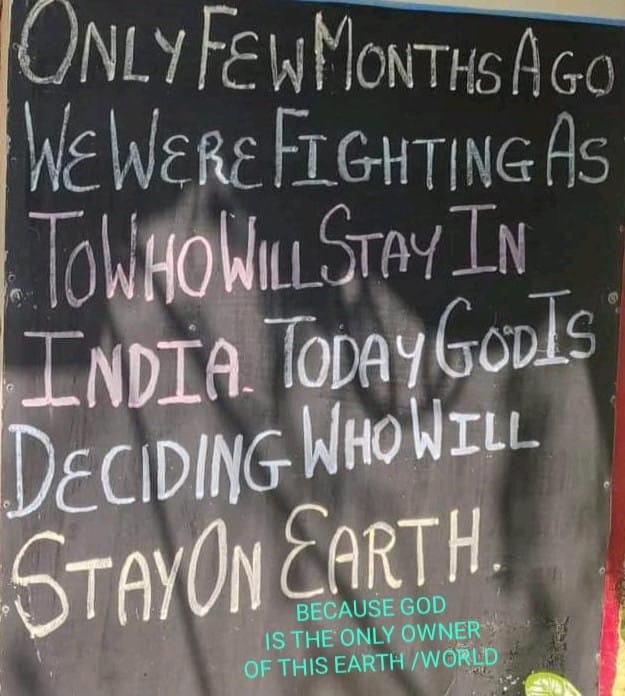 ONLY FEW MONTHS AGO
WE WERE FIGHTING AS
TO WHO WILL STAY IN
INDIA. TODAY GOD IS
DECIDING WHO WILL
STAY ON EARTH.
BECAUSE GOD
IS THE ONLY OWNER
OF THIS EARTH /WORLD